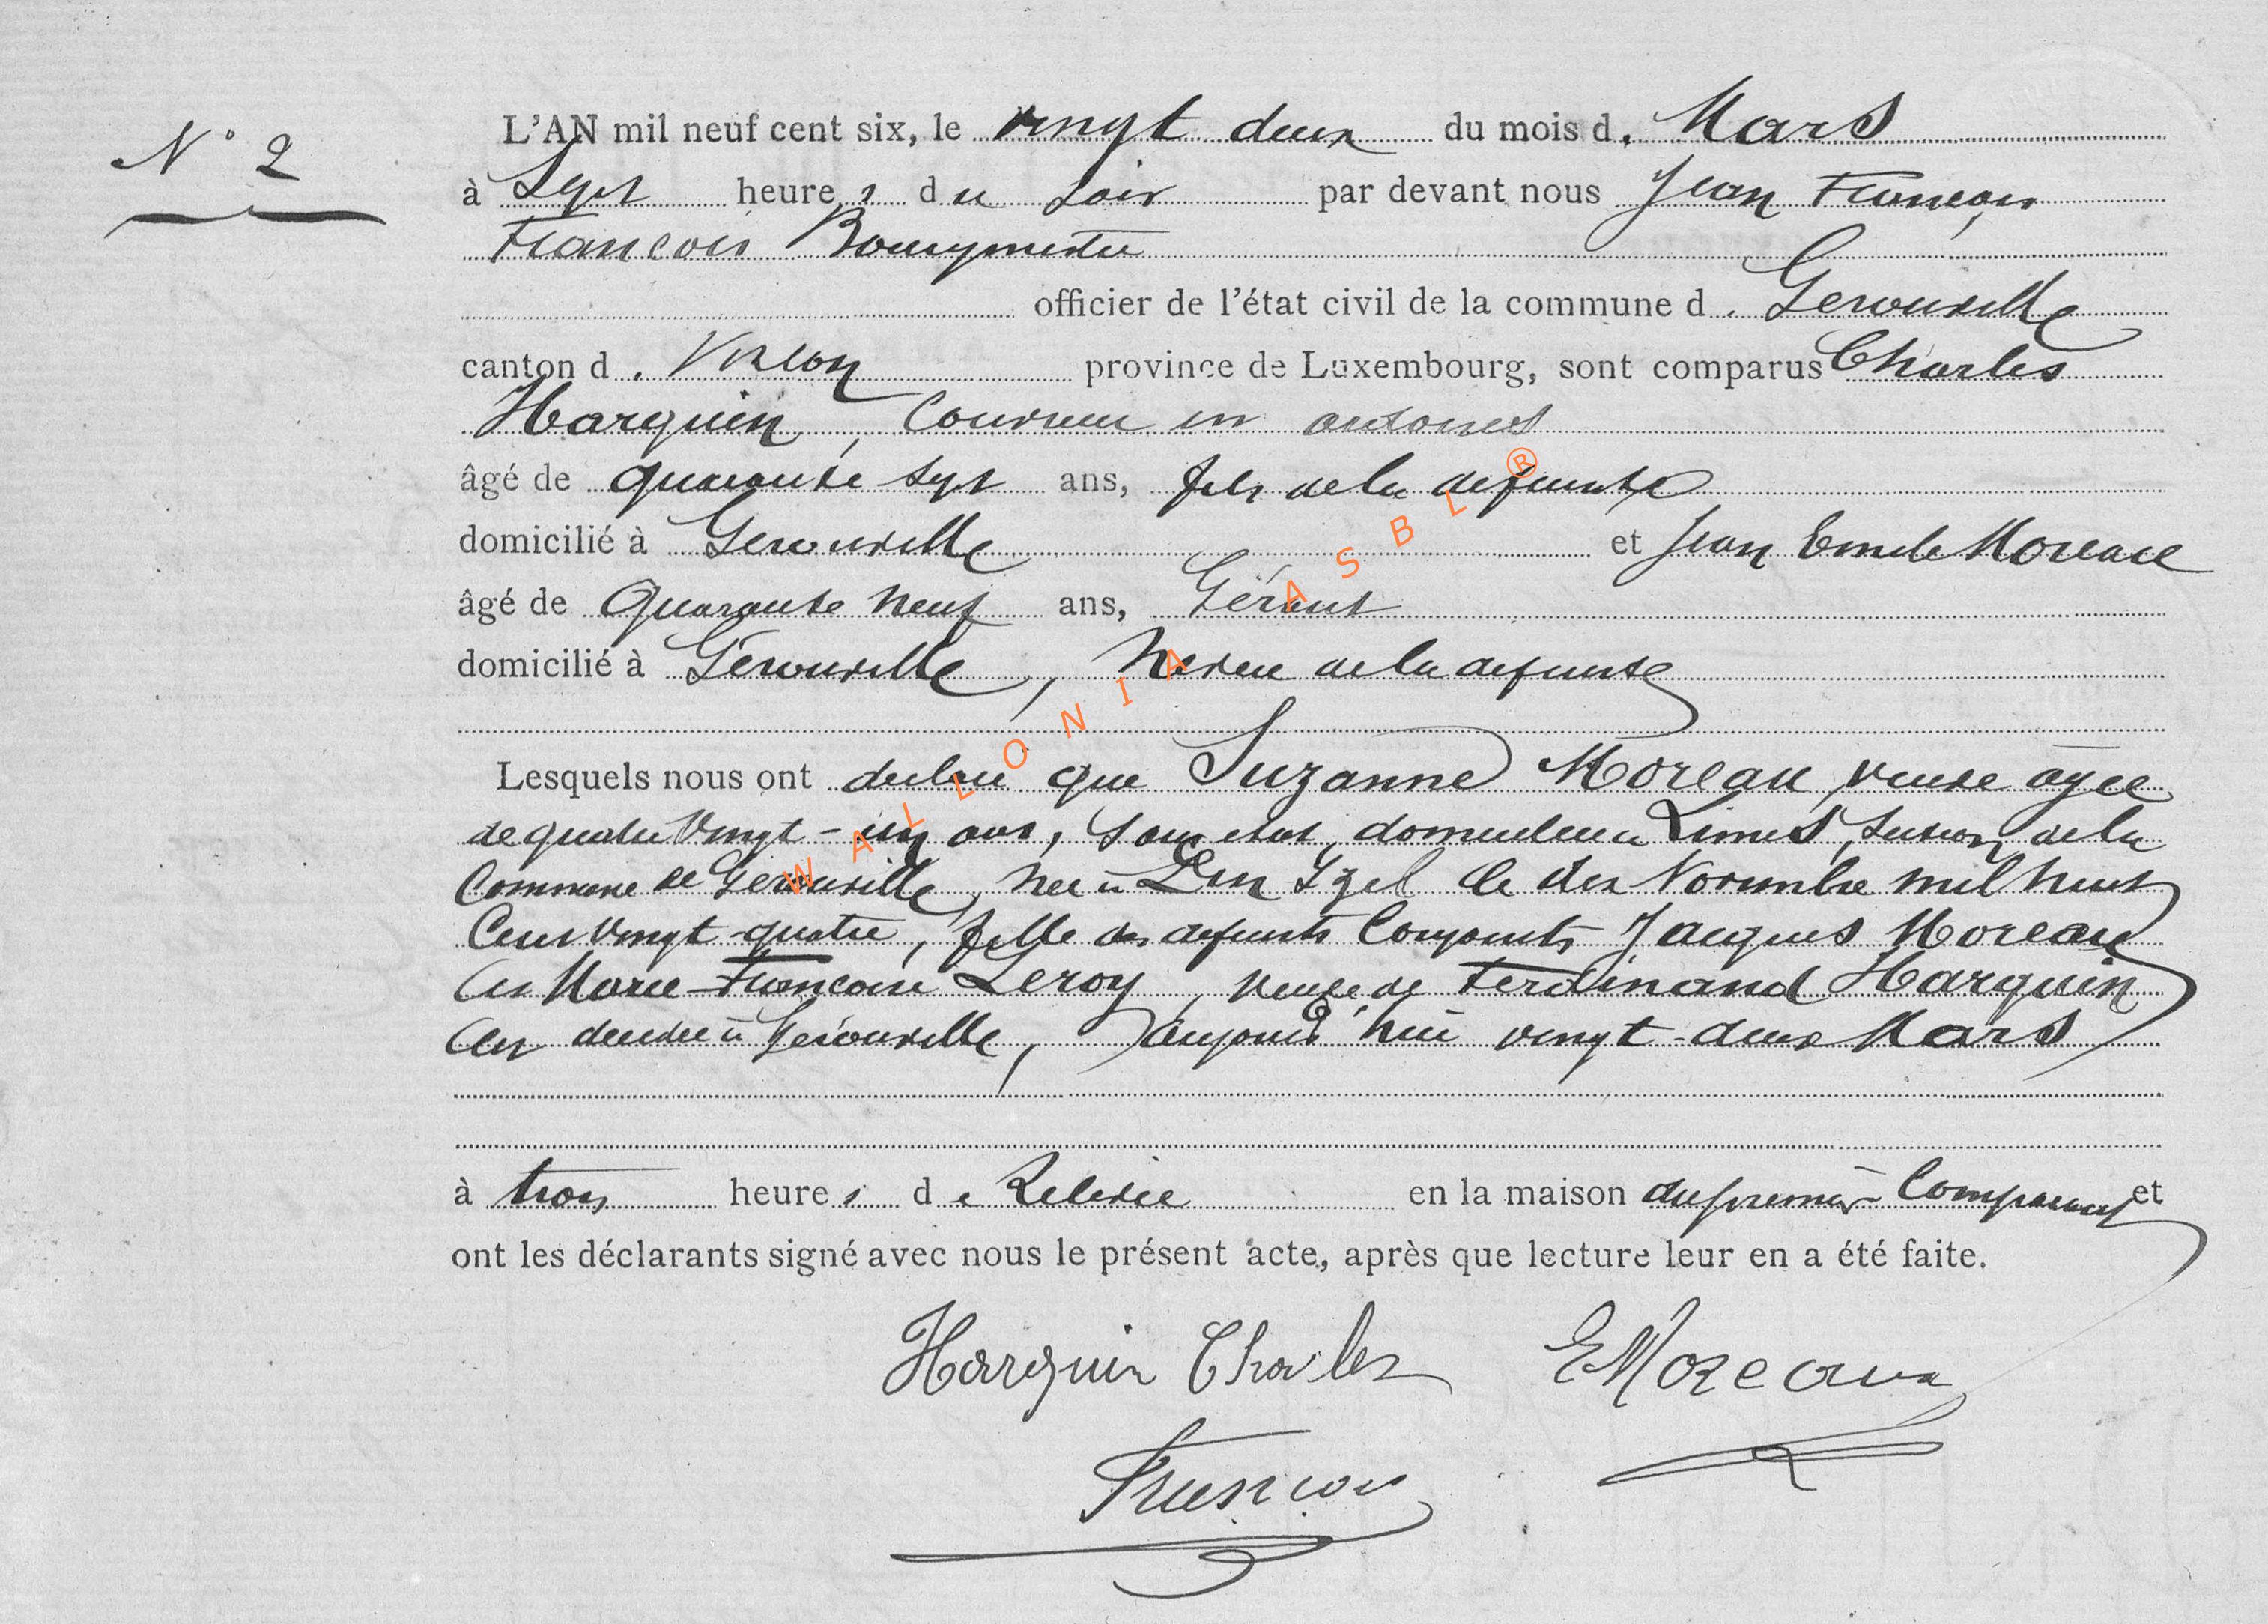 N° 2
L'AN mil neuf cent six, le vingt deux du mois d. Mars
à Sept heures du soir par devant nous Jean François
François Bourgmestre
officier de l'état civil de la commune d. Gerouville
canton d. Virton province de Luxembourg, sont comparus Charles
Harquin, Couvreur en ardoises
âgé de quarante sept ans, fils de la defunte
domicilié à Gerouville et Jean Emile Moreau
âgé de Quarante neuf ans, Gérant
domicilié à Gérouville, Neveu de la defunte
Lesquels nous ont declaré que Suzanne Moreau, veuve agée
de quatre Vingt - un ans, sans etat, domiciliée à Limes, section de la
Commune de Gerouville, née à Izel le dix Novembre mil huit
Cent Vingt-quatre, fille des defunts Conjoints Jacques Moreau
et Marie-Françoise Leroy, veuve de Ferdinand Harquin
est decedée à Gerouville, aujourd'hui vingt-deux Mars
à trois heures de Relevée en la maison du premier Comparant et
ont les déclarants signé avec nous le présent acte, après que lecture leur en a été faite.
Harquin Charles EMoreau
François
WALLONIA ASBL ®